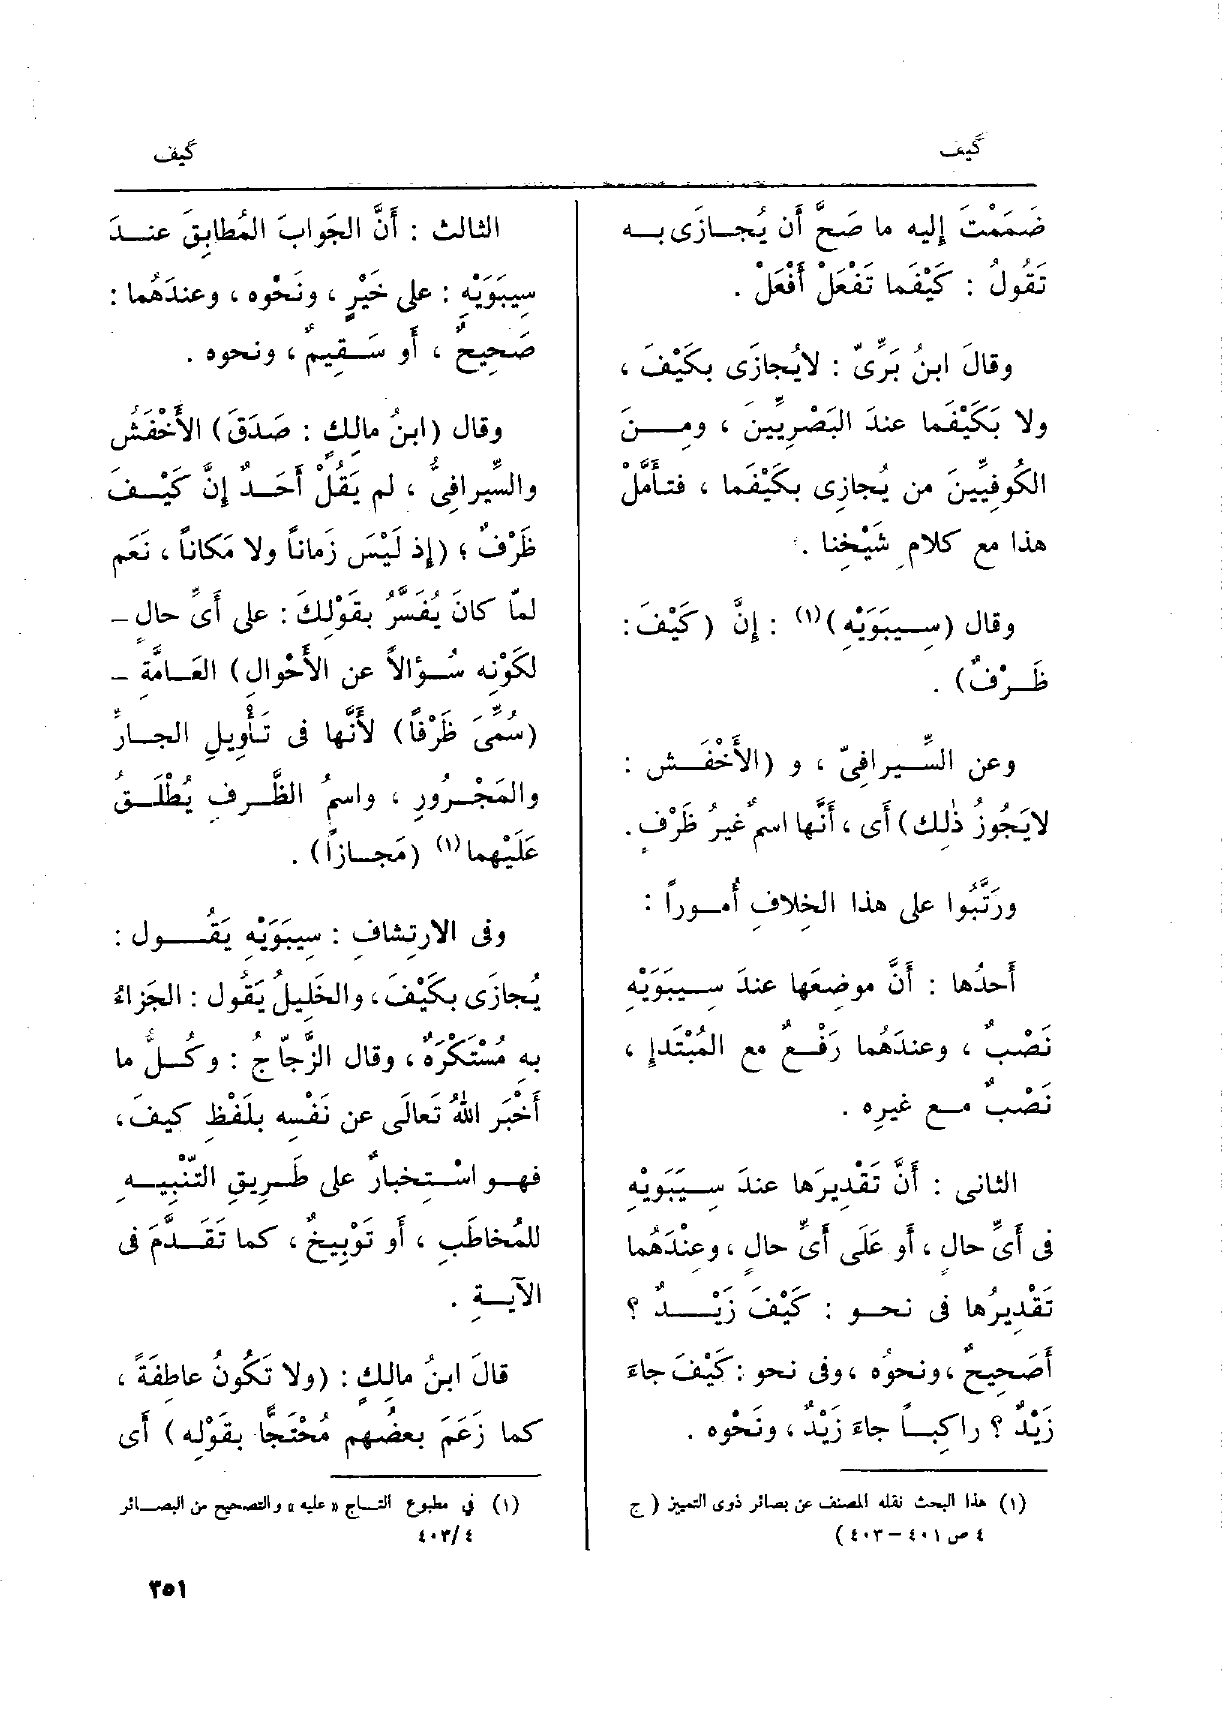 كَيف
كَيف
ضَمَمْتَ إليه ما صَحَّ أن يُجازَى به
تَقُولُ : كَيْفَما تَفْعَلْ أَفْعَلْ .
وقالَ ابنُ بَرِّىّ : لايُجازَى بكَيْفَ ،
ولا بَكَيْفَما عندَ البَصْرِيِّينَ ، ومِنَ
الكُوفِيِّينَ من يُجازِى بكَيْفَما ، فتأَمَّلْ
هذا مع كلامِ شَيْخِنا .
وقال (سِيبَوَيْه)(١) : إنَّ (كَيْفَ :
ظَرْفٌ) .
وعن السِّيرافِىّ ، و (الأَخْفَش :
لايَجُوزُ ذٰلك) أى ، أَنَّها اسمٌ غيرُ ظَرْفٍ .
ورَتَّبُوا على هذا الخِلافِ أُموراً :
أَحدُها : أَنَّ موضِعَها عندَ سِيبَوَيْهِ
نَصْبٌ ، وعندَهُما رَفْعٌ مع المُبْتَدإِ ،
نَصْبٌ مع غيرِه .
الثانى : أَنَّ تَقْدِيرَها عندَ سِيبَوَيْهِ
فى أَىِّ حالٍ ، أَو عَلَى أَىِّ حالٍ ، وعِنْدَهُما
تَقْدِيرُها فى نحو : كَيْفَ زَيْدٌ ؟
أَصَحِيحٌ ، ونحوُه ، وفى نحو : كَيْفَ جاءَ
زَيْدٌ ؟ راكِباً جاءَ زَيْدٌ ، ونَحْوه .
(١) هذا البحث نقله المصنف عن بصائر ذوى التمييز ( ج
٤ ص ٤٠١ – ٤٠٣ )
الثالث : أَنَّ الجَوابَ المُطابِقَ عندَ
سِيبَوَيْهِ : على خَيْرٍ ، ونَحْوه ، وعندَهُما :
صَحِيحٌ ، أَو سَقِيمٌ ، ونحوه .
وقال (ابنُ مالِكٍ : صَدَقَ) الأَخْفَشُ
والسِّيرافِىُّ ، لم يَقُلْ أَحَدٌ إنَّ كَيْفَ
ظَرْفٌ ؛ (إذ لَيْسَ زَماناً ولا مَكاناً ، نَعَم
لمّا كانَ يُفَسَّرُ بقَوْلِكَ : على أَىِّ حال –
لكَوْنِه سُؤالاً عن الأَحْوالِ) العَامَّةِ –
(سُمِّىَ ظَرْفاً) لأَنَّها فى تَأْوِيلِ الجارِّ
والمَجْرُورِ ، واسمُ الظَّرفِ يُطْلَقُ
عَلَيْهما(١) (مَجازاً) .
وفى الارتِشافِ : سِيبَوَيْهِ يَقُول :
يُجازَى بكَيْفَ ، والخَلِيلُ يَقُول : الجَزاءُ
به مُسْتَكْرَهٌ ، وقال الزَّجّاجُ : وكُلُّ ما
أَخْبَر اللهُ تَعالَى عن نَفْسِه بلَفْظِ كيفَ ،
فهو اسْتِخبارٌ على طَرِيقِ التَّنْبِيهِ
للمُخاطَبِ ، أو تَوْبِيخٌ ، كما تَقَدَّمَ فى
الآيةِ .
قالَ ابنُ مالِكٍ : (ولا تَكُونُ عاطِفَةً ،
كما زَعَمَ بعضُهم مُحْتَجًّا بقَوْلِه ) أَى
(١) في مطبوع التاج «عليه» والتصحيح من البصائر
٤/٤٠٣
٣٥١